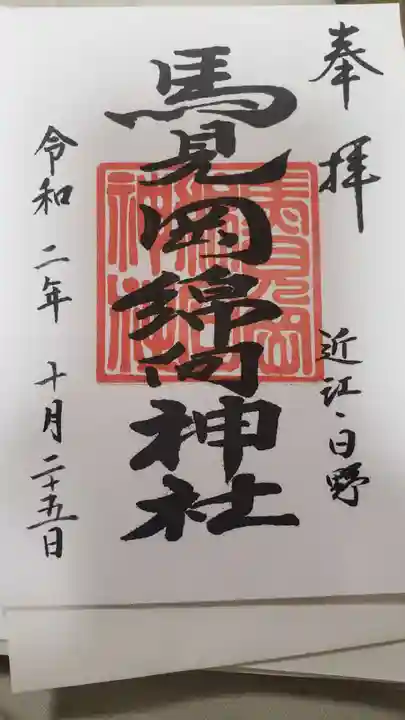 奉拝
近江・日野
馬見岡綿向神社
令和二年十月二十五日